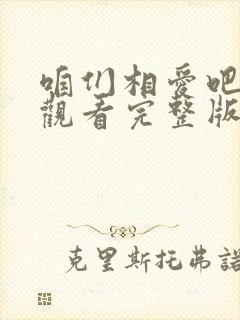 咱们相爱吧
觀看完整版
克里斯托弗諾